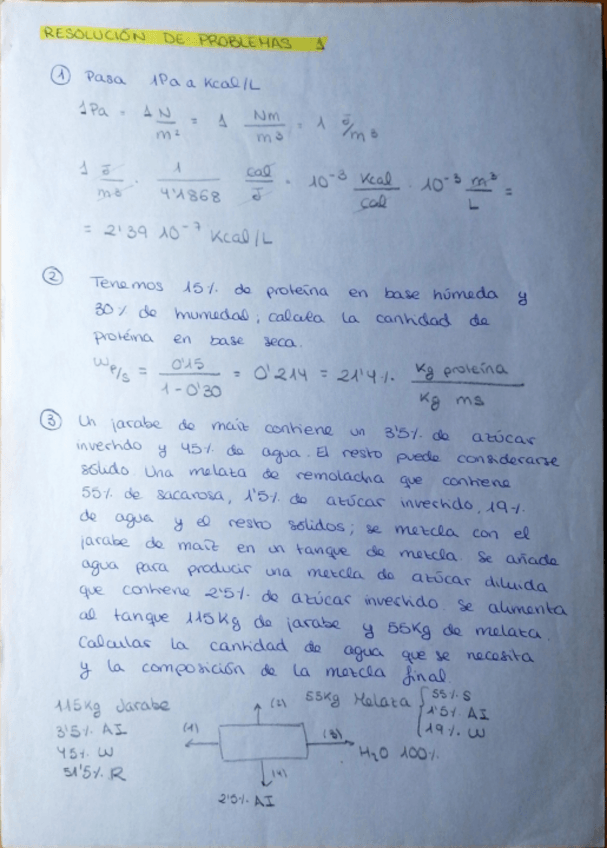 RESOLUCIÓN DE PROBLEMAS 1
① Pasa 1Pa a Kcal/L
1Pa = 1 N/m² = 1 Nm/m³ = 1 J/m³
1 J/m³ · 1/4'1868 cal/J · 10⁻³ Kcal/cal · 10⁻³ m³/L =
= 2'39 10⁻⁷ Kcal/L
② Tenemos 15% de proteína en base húmeda y
30% de humedad, calcula la cantidad de
proteína en base seca.
W P/S = 0'15/1-0'30 = 0'214 = 21'4% Kg proteína/Kg ms
③ Un jarabe de maíz contiene un 3'5% de azúcar
invertido y 45% de agua. El resto puede considerarse
sólido. Una melaza de remolacha que contiene
55% de sacarosa, 1'5% de azúcar invertido, 19%
de agua y el resto sólidos; se mezcla con el
jarabe de maíz en un tanque de mezcla. Se añade
agua para producir una mezcla de azúcar diluida
que contiene 2'5% de azúcar invertido. Se alimenta
al tanque 115Kg de jarabe y 55Kg de melaza.
Calcular la cantidad de agua que se necesita
y la composición de la mezcla final.
115Kg Jarabe (2) 55Kg Melaza { 55% S
3'5% AI (1) 1'5% AI
45% W (3) 19% W
51'5% R H₂O 100%
(4)
2'5% AI